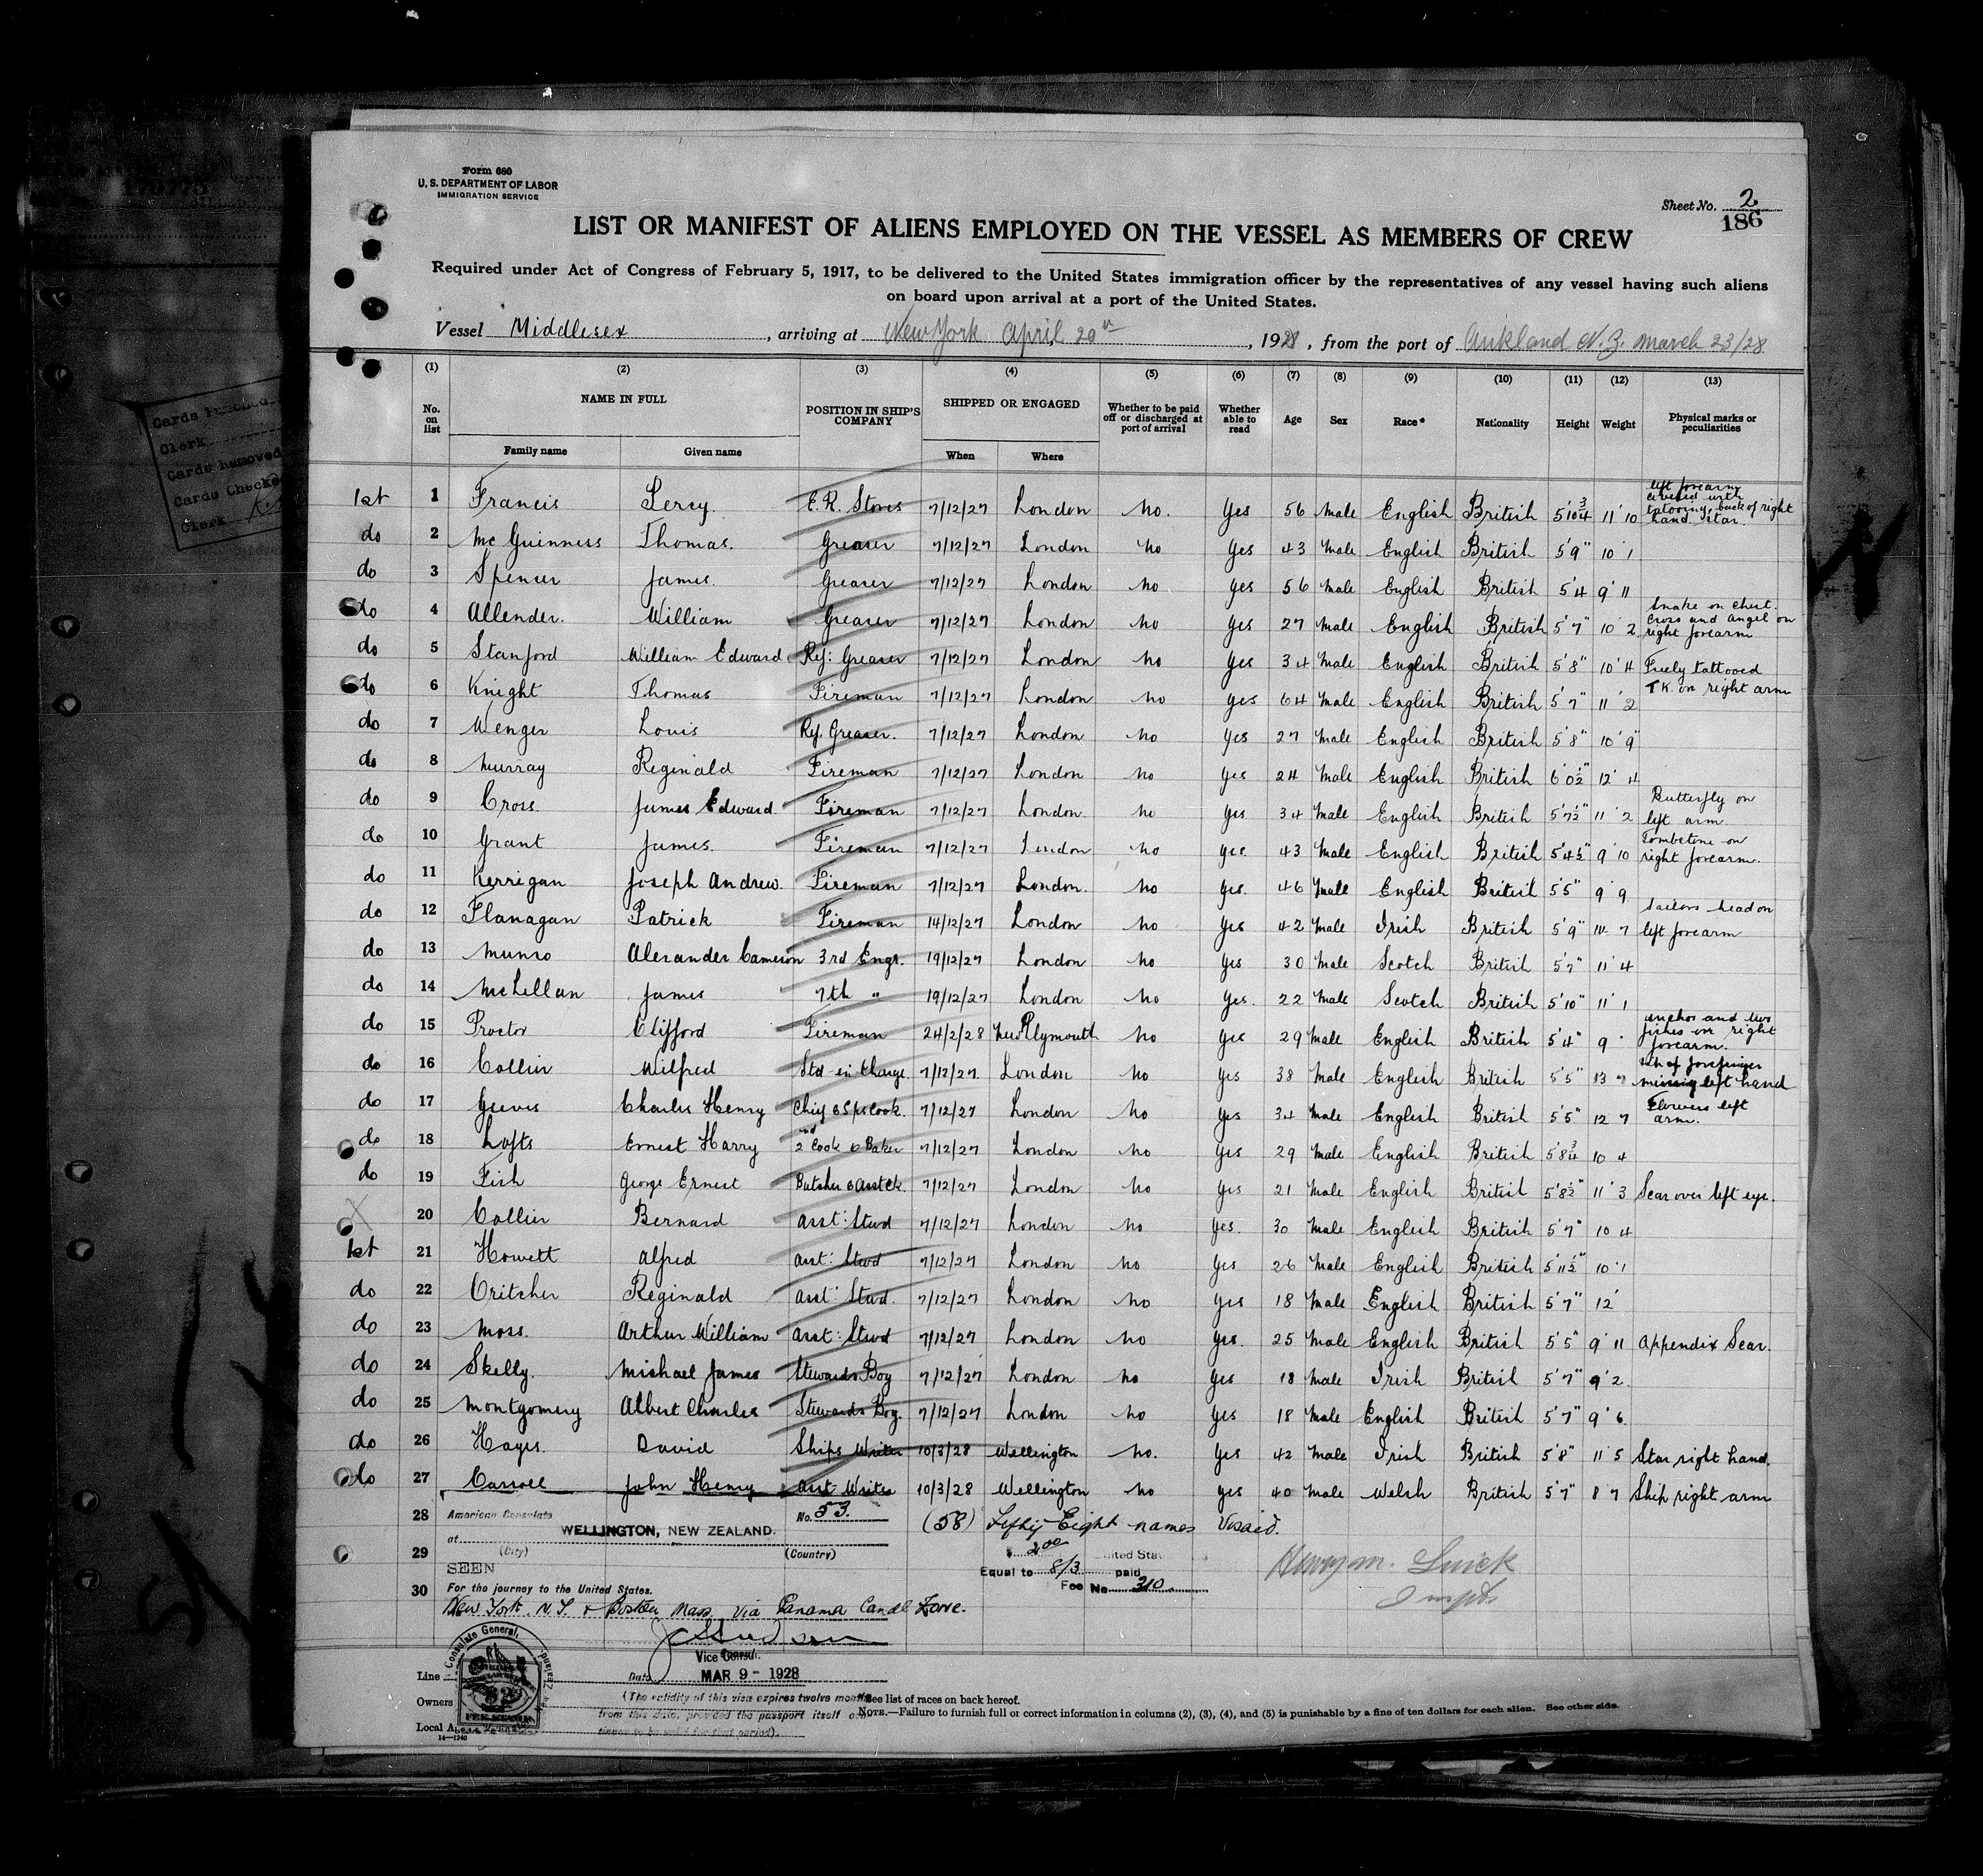 Form 680
U. S. DEPARTMENT OF LABOR
IMMIGRATION SERVICE
Sheet No. 2
186
LIST OR MANIFEST OF ALIENS EMPLOYED ON THE VESSEL AS MEMBERS OF CREW
Required under Act of Congress of February 5, 1917, to be delivered to the United States immigration officer by the representatives of any vessel having such aliens
on board upon arrival at a port of the United States.
Vessel Middlesex, arriving at New York April 20th, 1928, from the port of Aukland N.Z. March 23/28
(1) (2) (3) (4) (5) (6) (7) (8) (9) (10) (11) (12) (13)
No. on list NAME IN FULL POSITION IN SHIP'S COMPANY SHIPPED OR ENGAGED Whether to be paid off or discharged at port of arrival Whether able to read Age Sex Race* Nationality Height Weight Physical marks or peculiarities
Family name Given name When Where
1st 1 Francis Percy. E.R. Stores 7/12/27 London No. Yes 56 Male English British 5'10 3/4 11' 10 left forearm covered with tatooing, back of right hand star.
do 2 McGuinness Thomas. Greaser 7/12/27 London No Yes 43 Male English British 5'9" 10' 1
do 3 Spencer James. Greaser 7/12/27 London No Yes 56 Male English British 5'4 9' 11
do 4 Allender. William Greaser 7/12/27 London No Yes 27 Male English British 5'7" 10' 2 Snake on chest. Cross and Angel on right forearm
do 5 Stanford William Edward Ref: Greaser 7/12/27 London No Yes 34 Male English British 5'8" 10' 4 Freely tattooed
do 6 Knight Thomas Fireman 7/12/27 London No Yes 64 Male English British 5'7" 11' 2 T.K. on right arm
do 7 Wenger Louis Ref. Greaser. 7/12/27 London No Yes 27 Male English British 5'8" 10' 9"
do 8 Murray Reginald Fireman 7/12/27 London No Yes 24 Male English British 6'0 1/2" 12' 4
do 9 Cross. James Edward. Fireman 7/12/27 London No Yes 34 Male English British 5'7 1/2" 11' 2 Butterfly on left arm.
do 10 Grant James. Fireman 7/12/27 London No Yes. 43 Male English British 5'4 1/2" 9' 10 Tombstone on right forearm.
do 11 Kerrigan Joseph Andrew. Fireman 7/12/27 London. No Yes. 46 Male English British 5'5" 9' 9
do 12 Flanagan Patrick Fireman 14/12/27 London No Yes 42 Male Irish British 5'9" 7 Sailors head on left forearm
do 13 Munro Alexander Cameron 3rd Engr. 19/12/27 London No Yes 30 Male Scotch British 5'7" 11' 4
do 14 McLellan James 7th " 19/12/27 London No Yes. 22 Male Scotch British 5'10" 11' 1
do 15 Proctor Clifford Fireman 24/2/28 New Plymouth No Yes 29 Male English British 5'4" 9' anchor and two fishes on right forearm.
do 16 Collier Wilfred Std in Charge. 7/12/27 London No Yes 38 Male English British 5'5" 13 7 of forefinger missing left hand
do 17 Geeves Charles Henry Chief & Sps Cook. 7/12/27 London No Yes 34 Male English British 5'5" 12 7 Flowers left arm.
do 18 Lofts Ernest Harry 2nd Cook & Baker 7/12/27 London No Yes 29 Male English British 5'8 3/4 10 4
do 19 Fish George Ernest Butcher & asst Ck. 7/12/27 London No Yes 21 Male English British 5'8 1/2" 11' 3 Scar over left eye.
X 20 Collier Bernard asst: Stwd 7/12/27 London No Yes. 30 Male English British 5'7" 10 4
1st 21 Howett Alfred asst: Stwd 7/12/27 London No Yes 26 Male English British 5'11 1/2" 10' 1
do 22 Critcher Reginald asst: Stwd. 7/12/27 London No Yes 18 Male English British 5'7" 12'
do 23 Moss. Arthur William asst: Stwd 7/12/27 London No Yes. 25 Male English British 5'5" 9' 11 Appendix Scar.
do 24 Skelly. Michael James Stewards Boy 7/12/27 London No Yes 18 Male Irish British 5'7" 9' 2.
do 25 Montgomery Albert Charles Stewards Boy. 7/12/27 London No Yes 18 Male English British 5'7" 9' 6
do 26 Hayes. David Ships Writer 10/3/28 Wellington No. Yes 42 Male Irish British 5'8" 11' 5 Star right hand.
do 27 Carroll John Henry asst Writer 10/3/28 Wellington No Yes 40 Male Welsh British 5'7" 8 7 Ship right arm
28 American Consulate No. 53. (58) Fifty Eight names Visaed.
at WELLINGTON, NEW ZEALAND.
29 (City) (Country) $ 2.00 United Sta
SEEN Equal to 8/3 paid
30 For the journey to the United States. Fee No. 310
Henry M.
New York. N.Y. & Boston Mass. via Panama Canal Zone.
Vice Consul.
Date MAR 9- 1928
(The validity of this visa expires twelve months
from this date, provided the passport itself con-
tinues to be valid for that period).
Line
Owners
Local A
14—1240
Consulate General,
*See list of races on back hereof.
NOTE.—Failure to furnish full or correct information in columns (2), (3), (4), and (5) is punishable by a fine of ten dollars for each alien. See other side.
Cards Punched
Clerk
Cards Removed
Cards Checked
Clerk